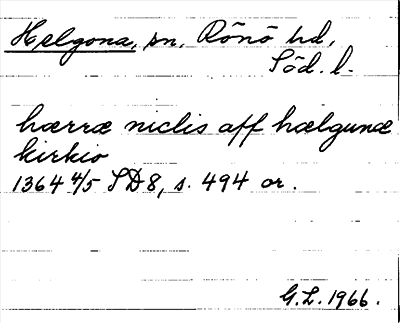 Helgona, sn. Rönö hd,
Söd. l.
hærræ niclis aff hælgunæ
kirkio
1364 4/5 SD8, s. 494 or.
G.L. 1966.